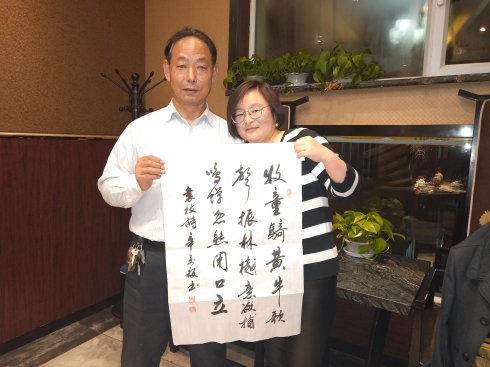 牧童騎黄牛歌
聲振林樾意欲捕
鳴蟬忽然閉口立
袁枚詩 辛